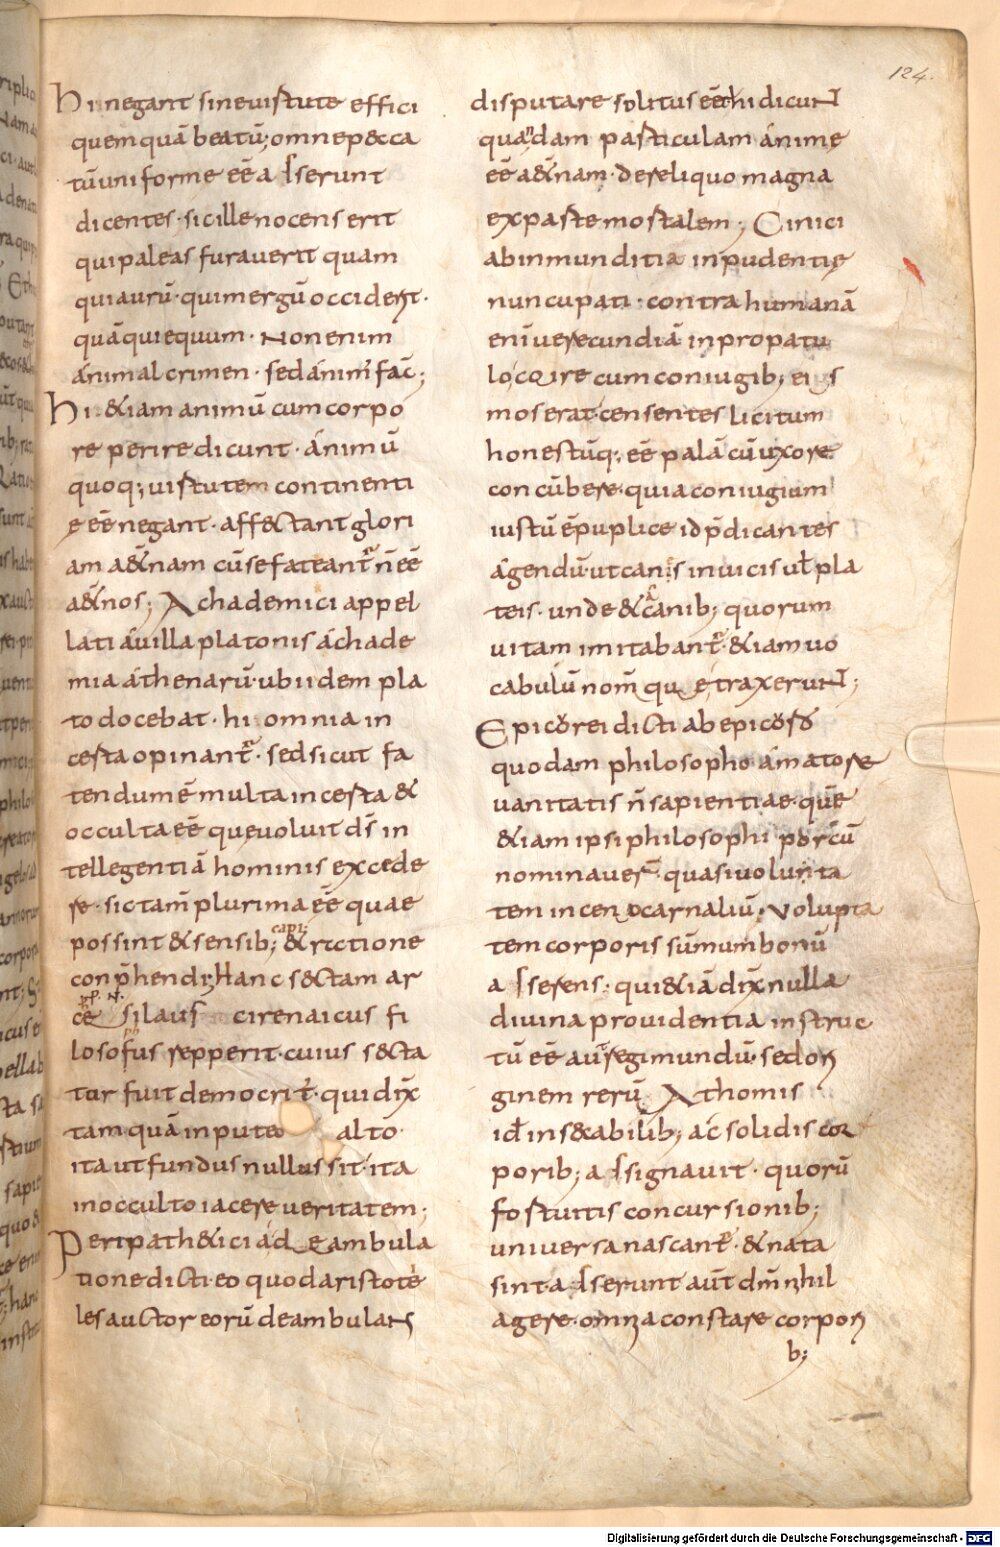 124.
Hi negant sine uirtute effici
quemquā beatū; omne p&cca
tū uniforme eē asserunt
dicentes · sic ille nocens erit
qui paleas furaverit quam
qui aurū · qui mergū occiderit ·
quā qui equum · Non enim
animal crimen · sed animꝰ fac̄;
Hi &iam animū cum corpo
re perire dicunt · animū
quoq; uirtutem continenti
e eē negant · aff&ctant glori
am a&̄nam cū se fateant̄ n̄ eē
a&̄nos; Achademici appel
lati a uilla platonis achade
mia athenarū · ubi idem pla
to docebat · hi omnia in
certa opinant̄ · sed sicut fa
tendum ē multa incerta &
occulta eē que uoluit d̄s in
tellegentiā hominis excede
re · sic tam̄ plurima eē quae
possint & sensib; capi; & rctione
conp̄hendi; Hanc s&ctam ar
ce silaus cirenaicus fi
losofus repperit · cuius s&cta
tor fuit democrit̄ · qui dix̄
tam quā in puteo alto
ita ut fundus nullus sit · ita
in occulto iacere ueritatem;
Peripath&ici a deambula
tione dicti · eo quod aristote
les auctor eorū deambulans
disputare solitus eēt hi dicunt
quandam particulam anime
eē a&̄nam · de reliquo magna
ex parte mortalem; Cinici
ab inmunditia inpudentie
nuncupati · contra humanā
enī uerecundiā in propatu
lo coire cum coniugib; eis
mos erat · censentes licitum
honestūq; eē palā cū uxore
concūbere · quia coniugium
iustū ē puplice id p̄dicantes
agendū · ut canis in uicis ul̄ pla
teis · unde & a canib; quorum
uitam imitabant̄ · &iam uo
cabulū nom̄qu e traxerunt;
Epicorei dicti ab epicoro
quodam philosopho amatore
uanitatis n̄ sapientiae · quē
&iam ipsi philosophi porcū
nominauer̄ · quasi volunta
tem in ceno carnaliū · volupta
tem corporis sūmum bonū
asserens · qui &iā dix̄ nulla
divina providentia instruc
tū eē aut regi mundū · sed ori
ginem rerū Athomis
id̄ insecabilib; ac solidis cor
porib; assignauit · quorū
fortuitis concursionib;
universa nascant̄ · & nata
sint · asserunt aūt dm̄ nihil
agere · omnia constare corpori
b;
Digitalisierung gefördert durch die Deutsche Forschungsgemeinschaft - DFG